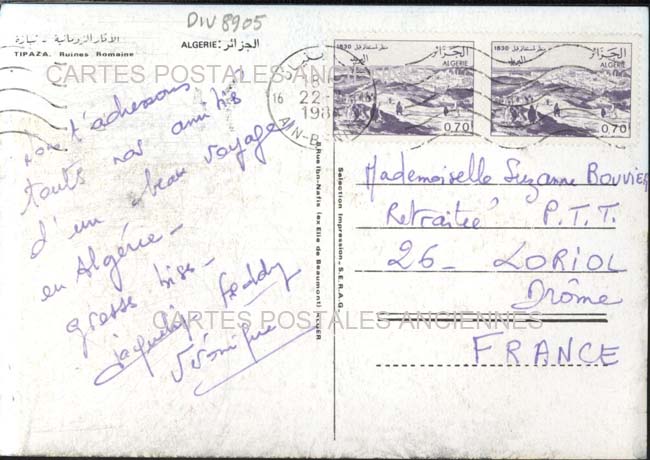 DIV 8905
الآثار الرومانية - تيبازة
TIPAZA. Ruines Romaine
ALGERIE: الجزائر
CARTES POSTALES ANCIENNES
nous t'adressons
touts nos amitiés
d'un beau voyage
en Algérie -
grosse bise -
Jacqueline Freddy
Véronique
CARTES POSTALES ANCIENNES
16
22
198
AIN-B
1830
الجزائر
ALGERIE
0,70
1830
الجزائر
ALGERIE
0,70
8 Rue Ibn-Nafis (ex Elie de Beaumont) ALGER
Sélection Impression - S.E.R.A.G.
Mademoiselle Suzanne BOUVIER
Retraitée P.T.T.
26 - LORIOL
Drôme
FRANCE